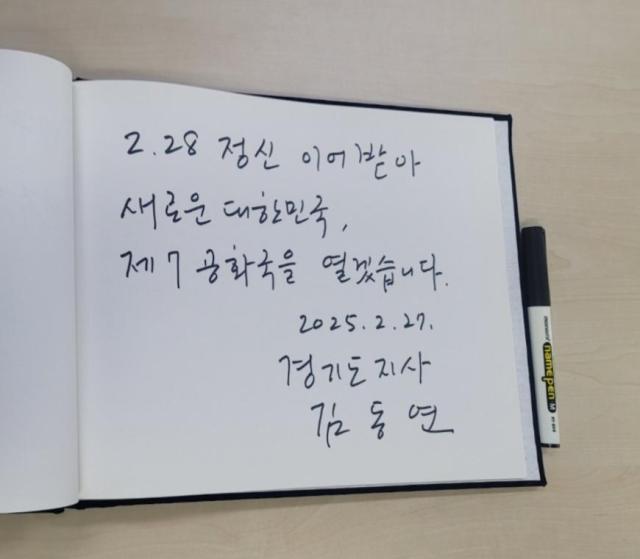 2.28 정신 이어받아
새로운 대한민국,
제7공화국을 열겠습니다.
2025.2.27.
경기도지사
김동연
namepen M